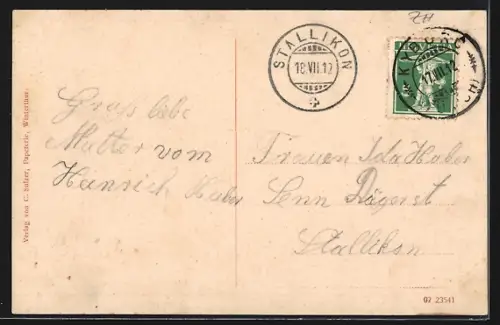 ZH
STALLIKON
18.VII.12
KYBURG
17.VII.12
Gruss liebe
Mutter vom
Heinrich Huber
Frauen Ida Huber
Senn Dägerst
Stallikon
Verlag von C. Sulzer, Papeterie, Winterthur.
02 23541